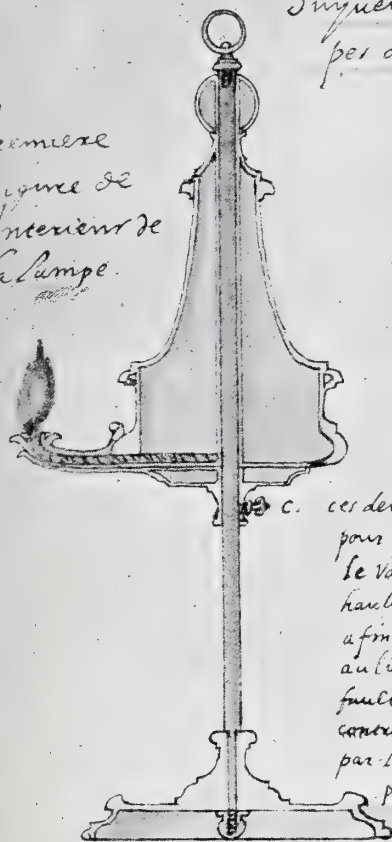 per
remiere
igure de
nterieur de
a Lampe.
c. ces der
pour
le va
haul
afin
au li
contr
par l